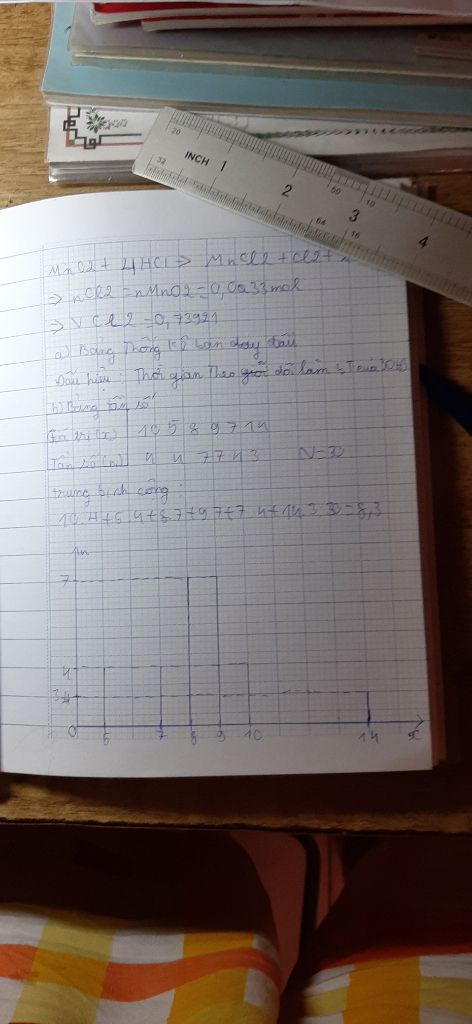 INCH 1 2 3 4
MnO2 + 4HCl → MnCl2 + Cl2 +
=> nCl2 = nMnO2 = 0,0033 mol
=> VCl2 = 0,7392l
a) Bảng thống kê ban đầu
Dấu hiệu: Thời gian theo dõi làm
b) Bảng tần số
Giá trị (x) 10 5 8 9 7 14
Tần số (n) 4 4 7 7 4 3 N=30
trung bình cộng:
10.4+5.4+8.7+9.7+7.4+14.3 30=8,3
7
4
3
0 5 7 8 9 10 14 x